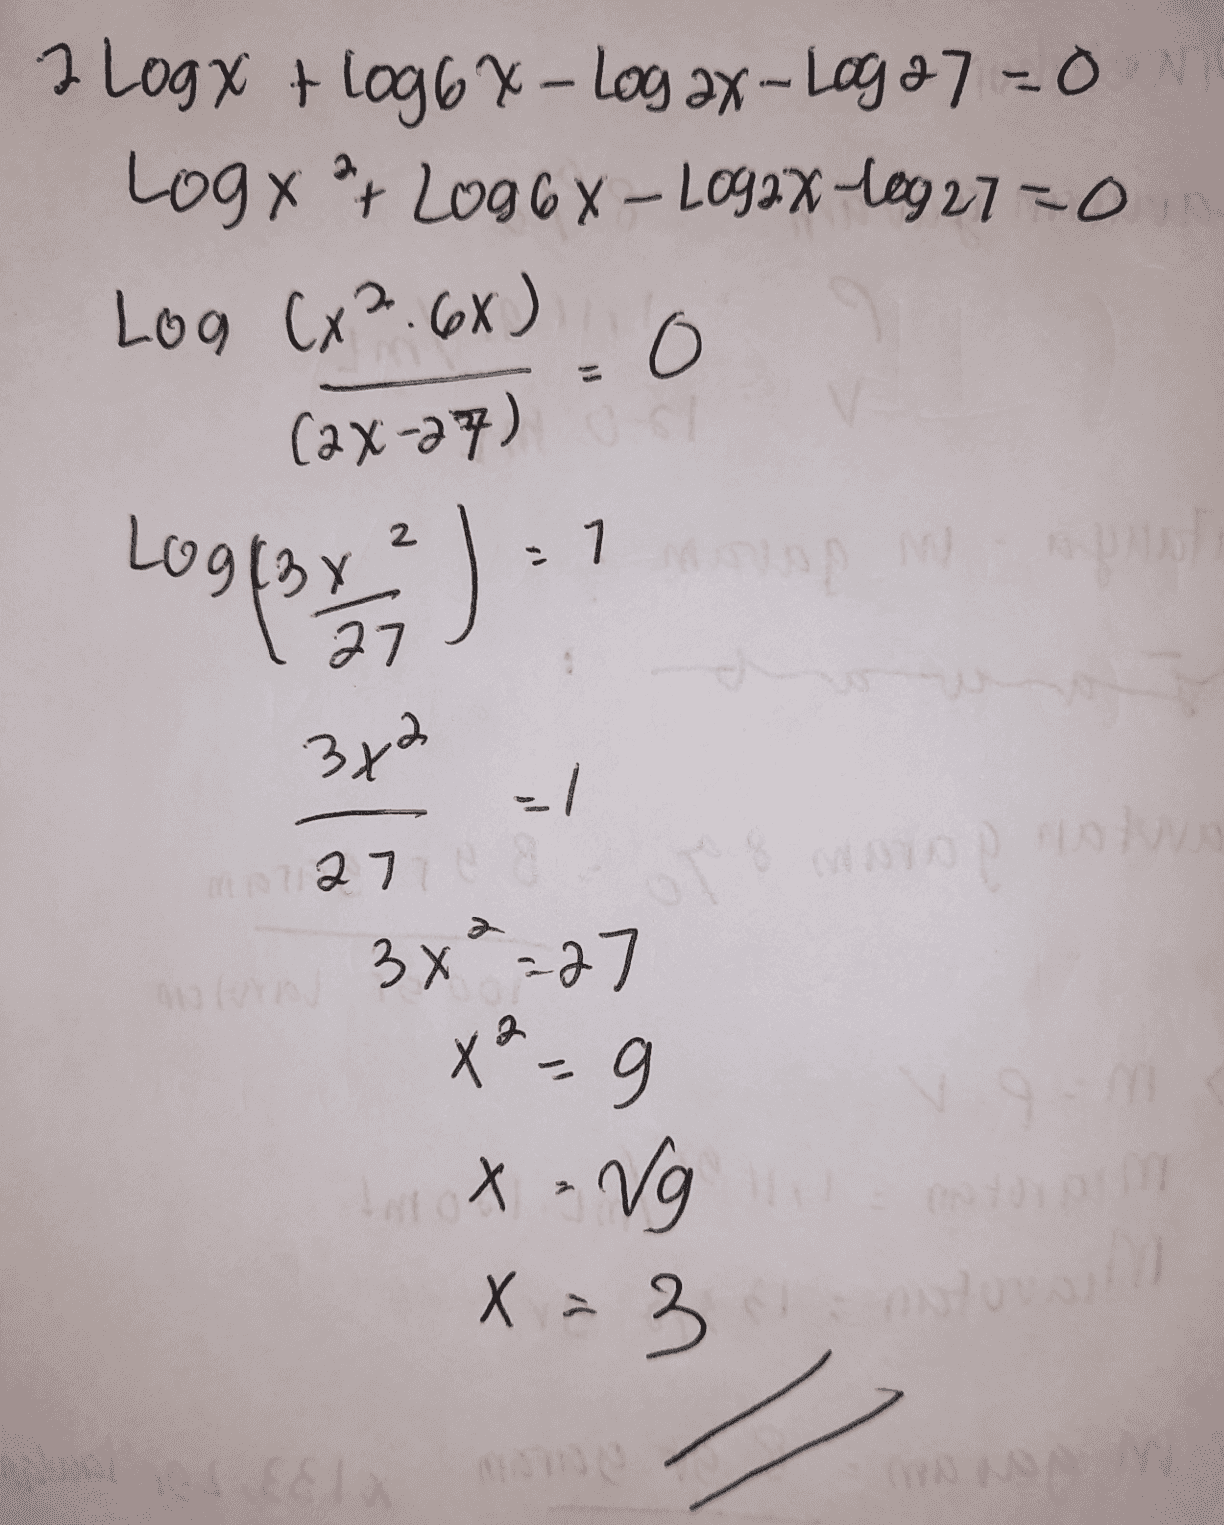 2 Log x + log 6x - Log 2x - Log 27 = 0
Log x² + Log 6x - Log 2x - log 27 = 0
Log (x² . 6x) / (2x - 27) = 0
Log (3x² / 27) = 1
3x² / 27 = 1
3x² = 27
x² = 9
x = √9
x = 3